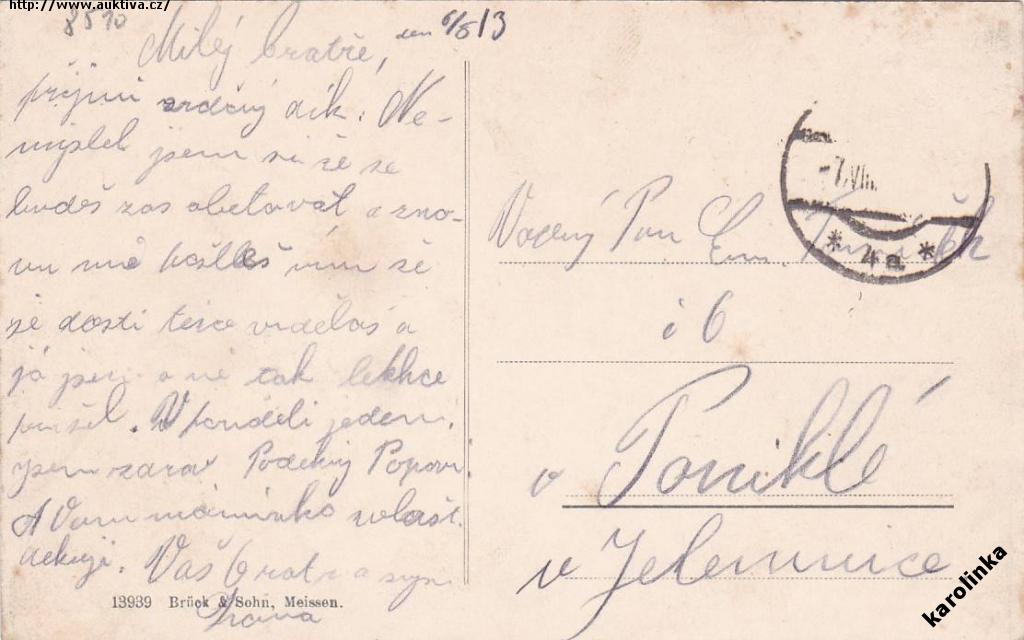 http://www.auktiva.cz/
8510
Milý bratře, den 6/8 13
přijmi srdečný dík. Ne-
myslel jsem si že se
budeš zas obětovat a zno-
vu mě pošleš vím že
se dosti těsce vidělaš a
já jsem o ně tak lekhce
přišel. V pondělí jedem,
jsem zdráv Poděkuj
A Vám maminko zvlášť
děkuji. Váš bratr a syn
13939 Brück & Sohn, Meissen.
-7.VIII.
* 4a *
Vážený Pan
č 6
v Poniklé
v Jelemnice
karolinka